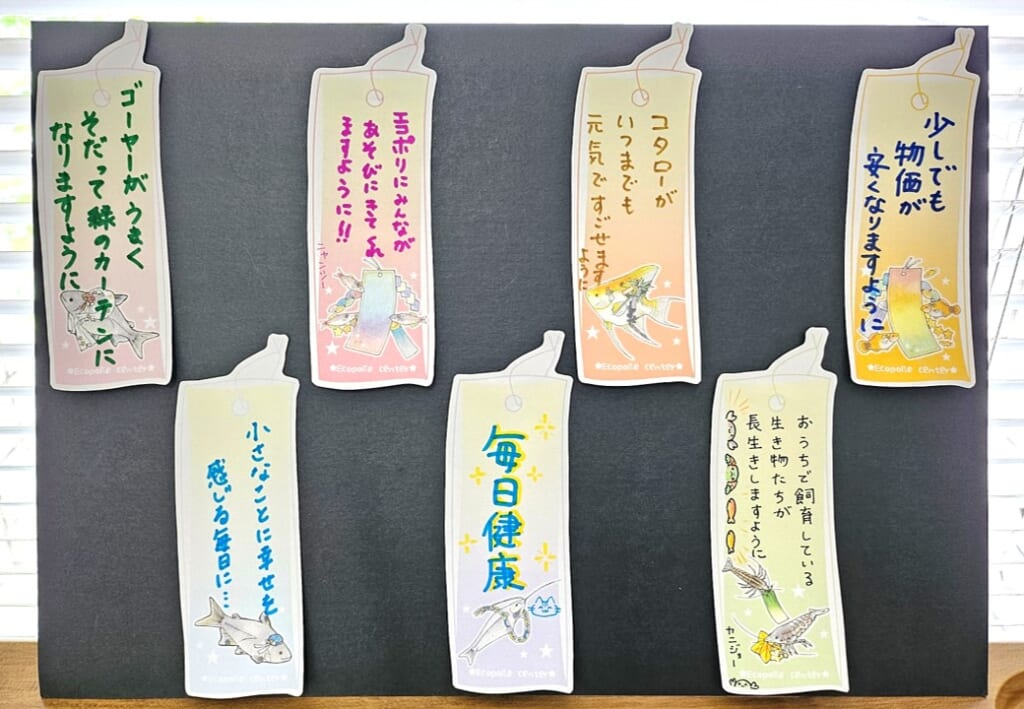 ゴーヤーがうまく
そだって緑のカーテンに
なりますように
エコポリにみんなが
あそびにきてくれ
ますように!!
ニャンツー
★Ecopolis Center★
コタローが
いつまでも
元気ですごせます
ように
★Ecopolis Center★
少しでも
物価が
安くなりますように
★Ecopolis Center★
小さなことに幸せを
感じる毎日に…
★Ecopolis Center★
毎日健康
★Ecopolis Center★
おうちで飼育している
生き物たちが
長生きしますように
カニジョー
★Ecopolis Center★